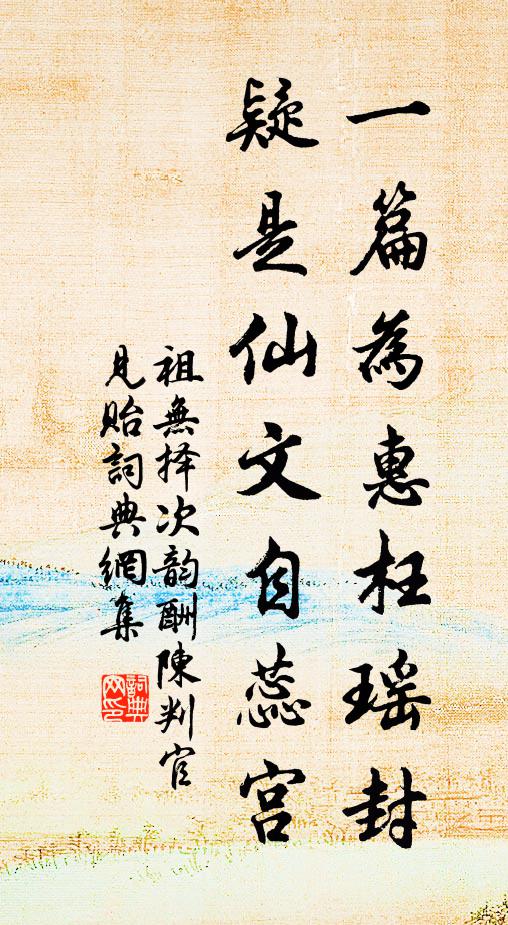 一篇為惠枉瑶封
疑是仙文自蕊宫
祖無择次韵酬陳判官
見貽詞典網集
詞典网印